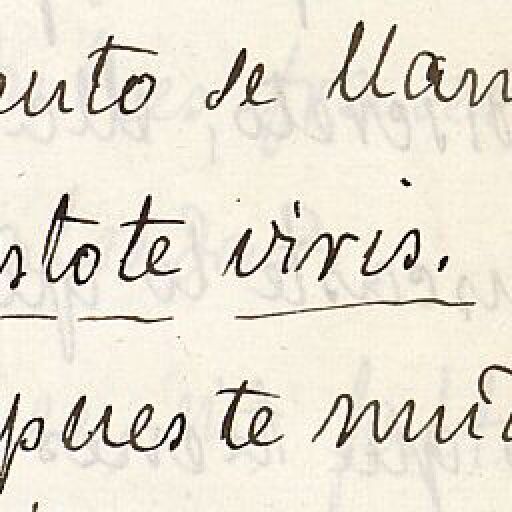 ento de Uan
stote viris.
pues te mui